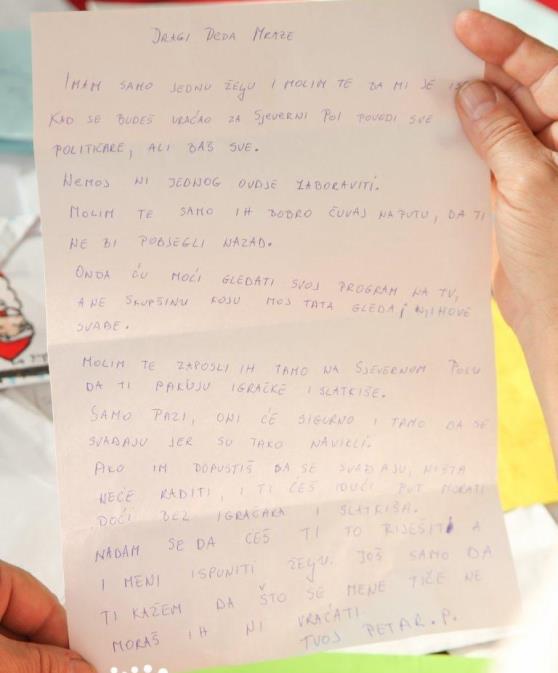 DRAGI DEDA MRAZE
IMAM SAMO JEDNU ŽEQU I MOLIM TE DA MI JE
KAD SE BUDEŠ VRAĆAO ZA SJEVERNI POL POVEDI SVE
POLITIČARE, ALI BAŠ SVE.
NEMOJ NI JEDNOG OVDJE ZABORAVITI.
MOLIM TE SAMO IH DOBRO ČUVAJ NA PUTU, DA TI
NE BI POBJEGLI NAZAD.
ONDA ĆU MOĆI GLEDATI SVOJ PROGRAM NA TV,
A NE SKUPŠTINU KOJU MOJ TATA GLEDA I NJIHOVE
SVAĐE.
MOLIM TE ZAPOSLI IH TAMO NA SJEVERNOM POLU
DA TI PAKUJU IGRAČKE I SLATKIŠE.
SAMO PAZI, ONI ĆE SIGURNO I TAMO DA SE
SVAĐAJU JER SU TAKO NAVIKLI.
AKO IM DOPUSTIŠ DA SE SVAĐAJU, NIŠTA
NEĆE RADITI, I TI ĆEŠ IDUĆI PUT MORATI
DOĆI BEZ IGRAČAKA I SLATKIŠA.
NADAM SE DA ĆEŠ TI TO RIJEŠITI A
I MENI ISPUNITI ŽEQU. JOŠ SAMO DA
TI KAŽEM DA ŠTO SE MENE TIČE NE
MORAŠ IH NI VRAĆATI.
TVOJ PETAR.P.